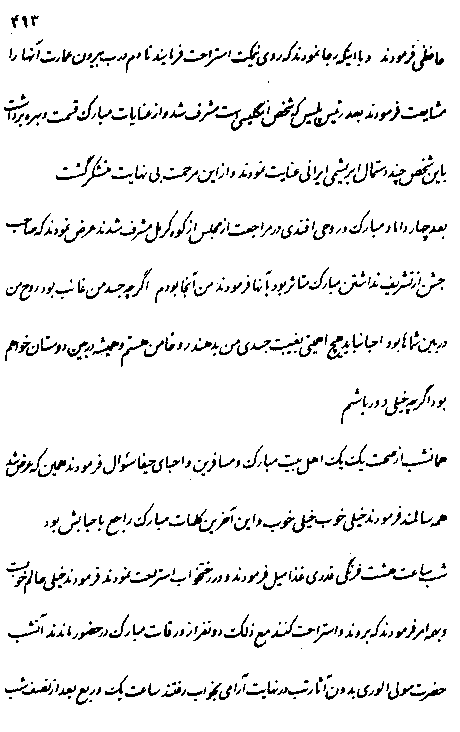 ۴۹۳
حافظی فرمودند و با اینکه رجا نمودند که روی نیمکت استراحت فرمایند تا دم درب بیرون عمارت آنها را
مشایعت فرمودند بعد رئیس پلیس که شخص انگلیسی است مشرف شد و از عنایات مبارک قسمت و بهره برداشت
باین شخص چند دستمال ابریشمی ایرانی عنایت نمودند و از این مرحمت بی نهایت متشکر گشت
بعد چهار داماد مبارک و روحی افندی در مراجعت از مجلس از کوه کرمل مشرف شدند عرض نمودند که صاحب
جشن از تشریف نداشتن مبارک متاثر بود بآنها فرمودند من آنجا بودم اگرچه جسد من غائب بود روح من
در بین شما بود احبا نباید هیچ اهمیتی بغیبت جسدی من بدهند روحا من هستم و همیشه در بین دوستان خواهم
بود اگرچه خیلی دور باشم
همانشب از صحت یک یک اهل بیت مبارک و مسافرین و احبای حیفا سئوال فرمودند همین که عرض شد
همه سالمند فرمودند خیلی خوب خیلی خوب و این آخرین کلمات مبارک راجع باحبایش بود
شب ساعت هشت فرنگی قدری غذا میل فرمودند و در رختخواب استراحت نمودند فرمودند خیلی حالم خوبست
و بعد امر فرمودند که بروند و استراحت کنند مع ذلک دو نفر از ورقات مبارک در حضور ماندند آنشب
حضرت مولی الوری بدون آثار تب در نهایت آرامی بخواب رفتند ساعت یک و ربع بعد از نصف شب